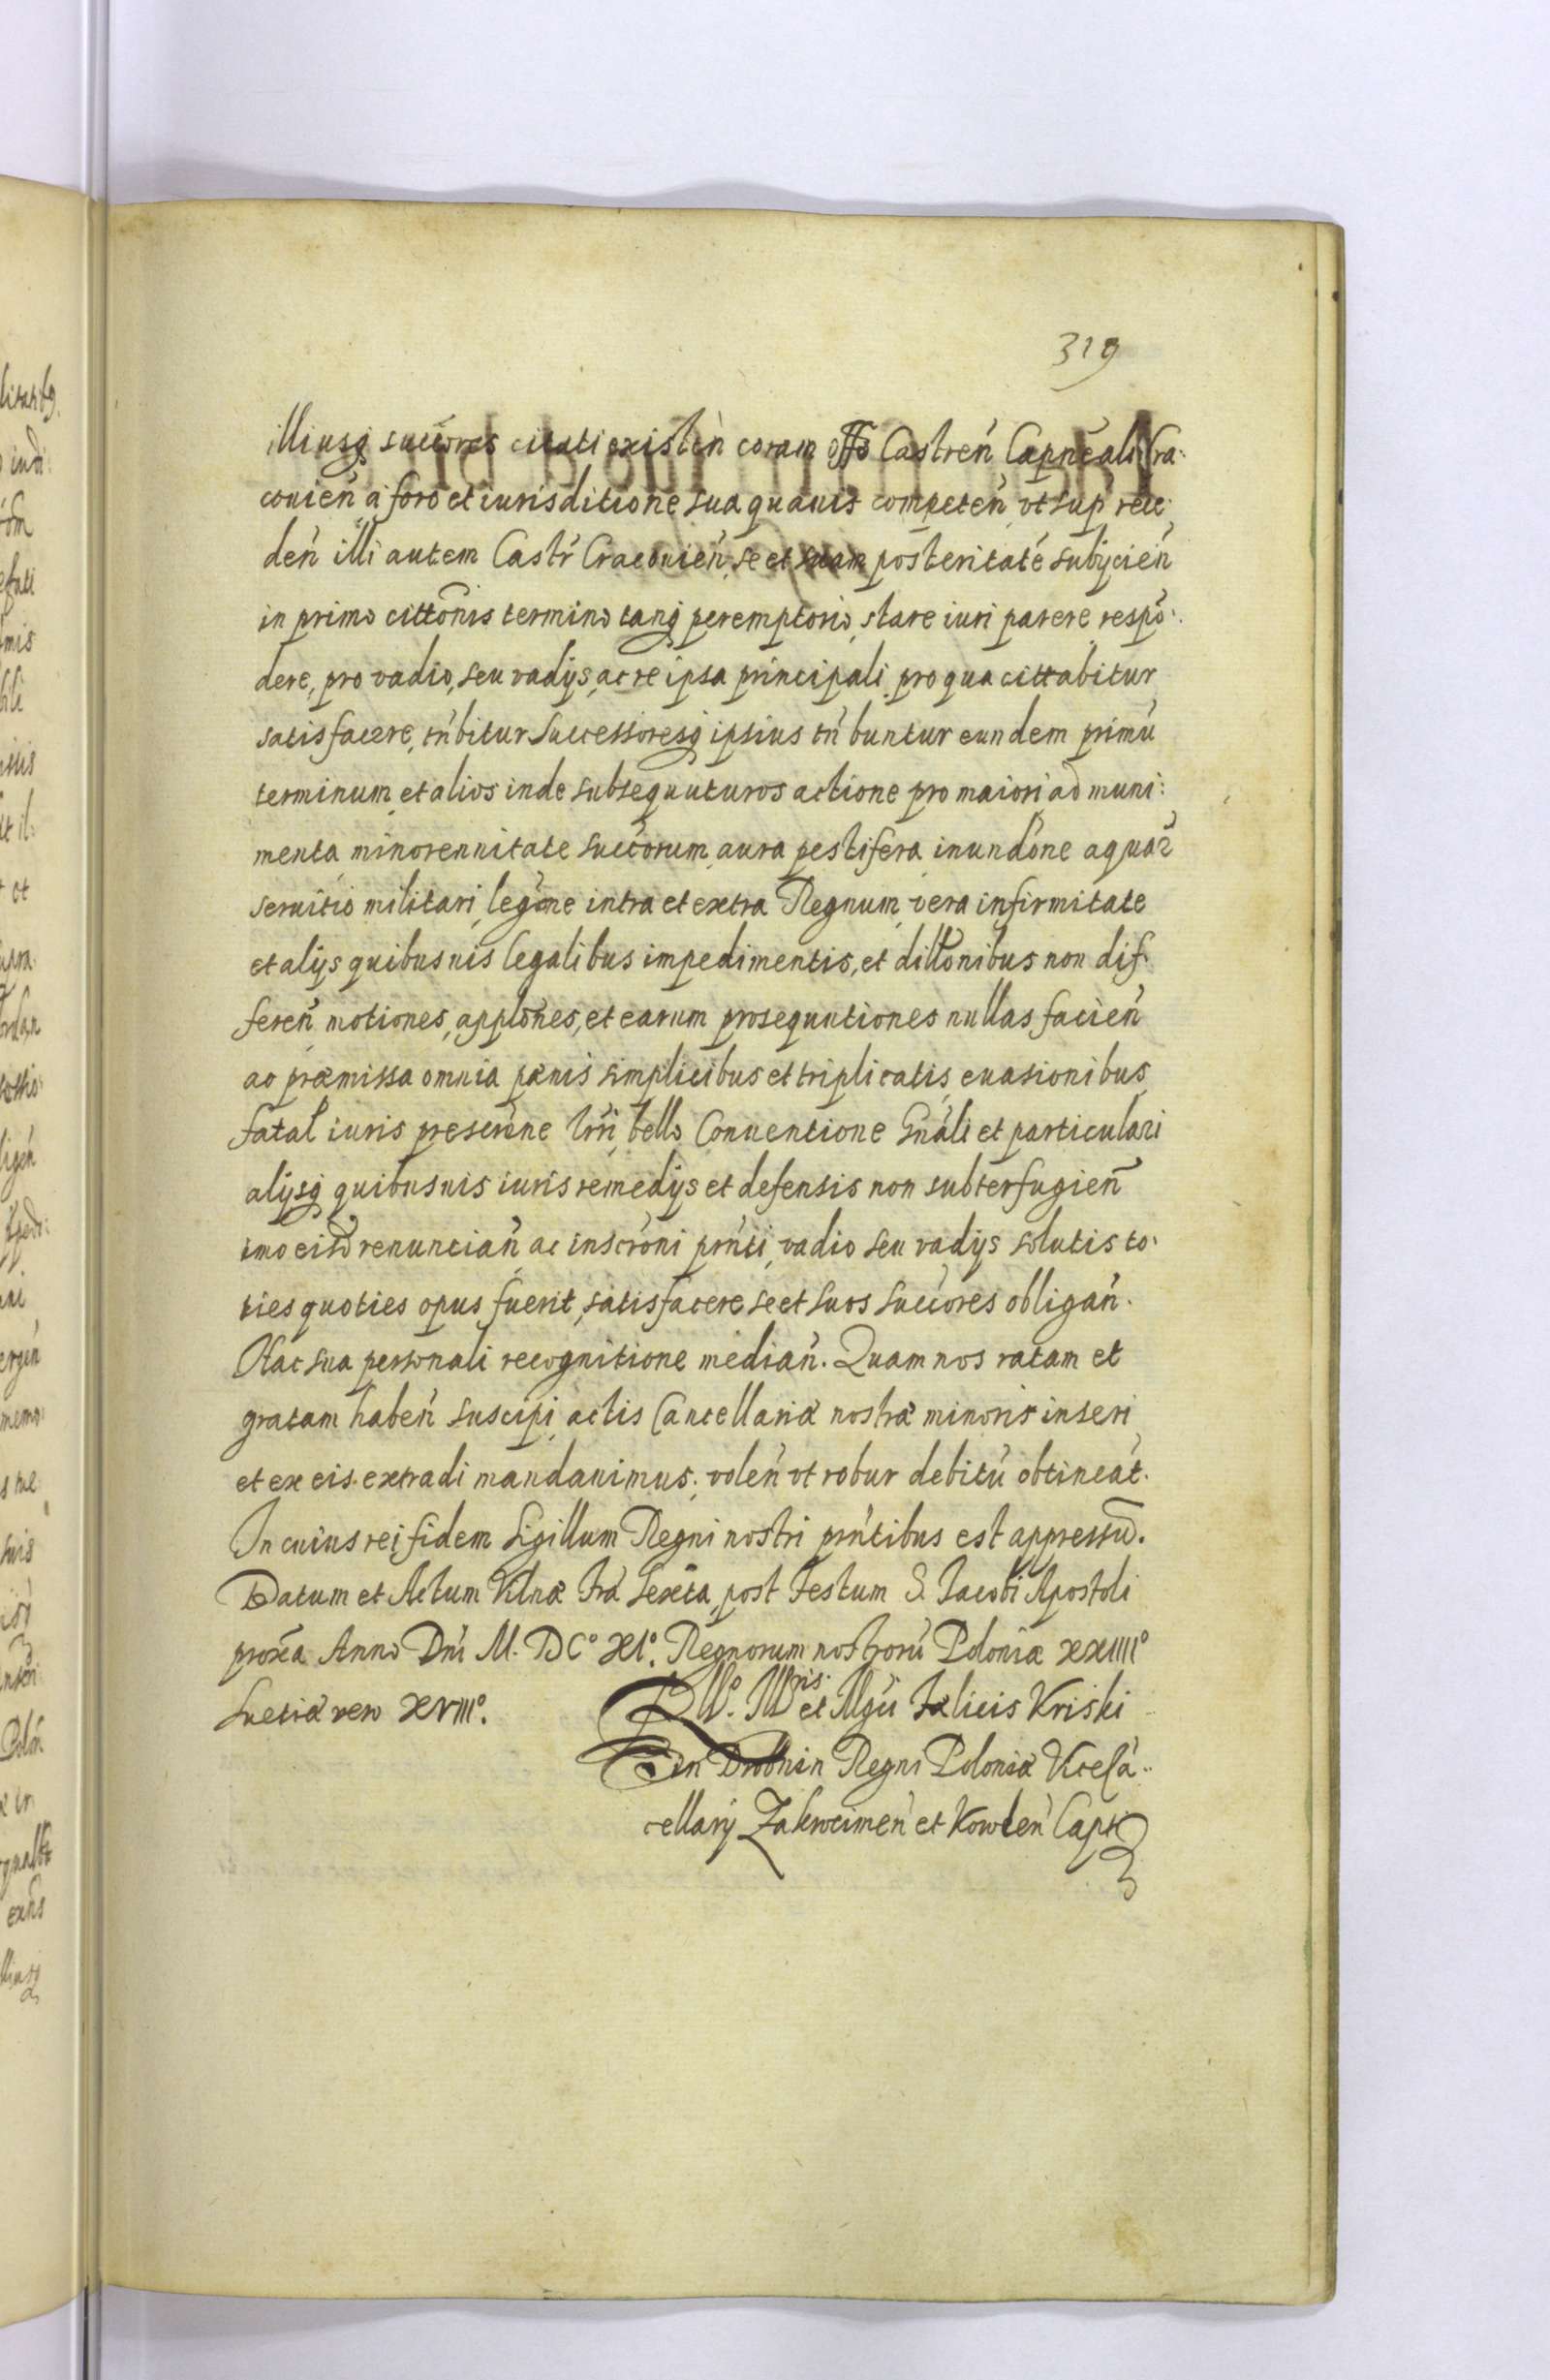 319
illiusq succores citati existen coram offo Castren Capneali Cra:
couien a foro et iurisditione sua quauis competen vt sup rece
den illi autem Castr Cracouien, se et suam posteritate subijcien
in primo cittonis termino tanq peremptorio, stare iuri parere respo:
dere, pro vadio, seu vadijs, ac re ipsa principali pro qua cittabitur
satisfacere, tnbitur Successoresq ipsius tnbuntur eundem primu
terminum, et alios inde subsequuturos actione pro maiori, ad muni:
menta, minorennitate succorum, aura pestifera, inundone aquar
seruitio militari, legone intra et extra Regnum, vera infirmitate
et alijs quibusuis legalibus impedimentis, et dilltonibus non dif
feren, motiones, applones, et earum prosequutiones nullas facien
ac præmissa omnia pænis simplicibus et triplicatis, euasionibus
fatal iuris prescrone lrri, bello Conuentione Gnali et particulari
alijsq quibusuis iuris remedijs et defensis non subterfugien
imo eisd renuncian ac inscroni prnti, vadio seu vadijs solutis to:
ties quoties opus fuerit, satisfacere se et suos succores obligan.
Hac sua personali recognitione median. Quam nos ratam et
gratam haben suscipi, actis Cancellariæ nostræ minoris inseri
et ex eis extradi mandauimus, volen vt robur debitu obtineat.
In cuius rei fidem Sigillum Regni nostri prntibus est appressu.
Datum et Actum Vilnæ fra sexta, post Festum S. Iacobi Apostoli
proxa Anno Dni M. DC° XI°. Regnorum nostroru Poloniæ XXIIII°
Sueciæ vero XVIII°.
Rllo. Illris et Mgci Fælicis Kriski
in Drobnin Regni Poloniæ Vicecā
cellarij Zakrocimen et Kowlen Capti